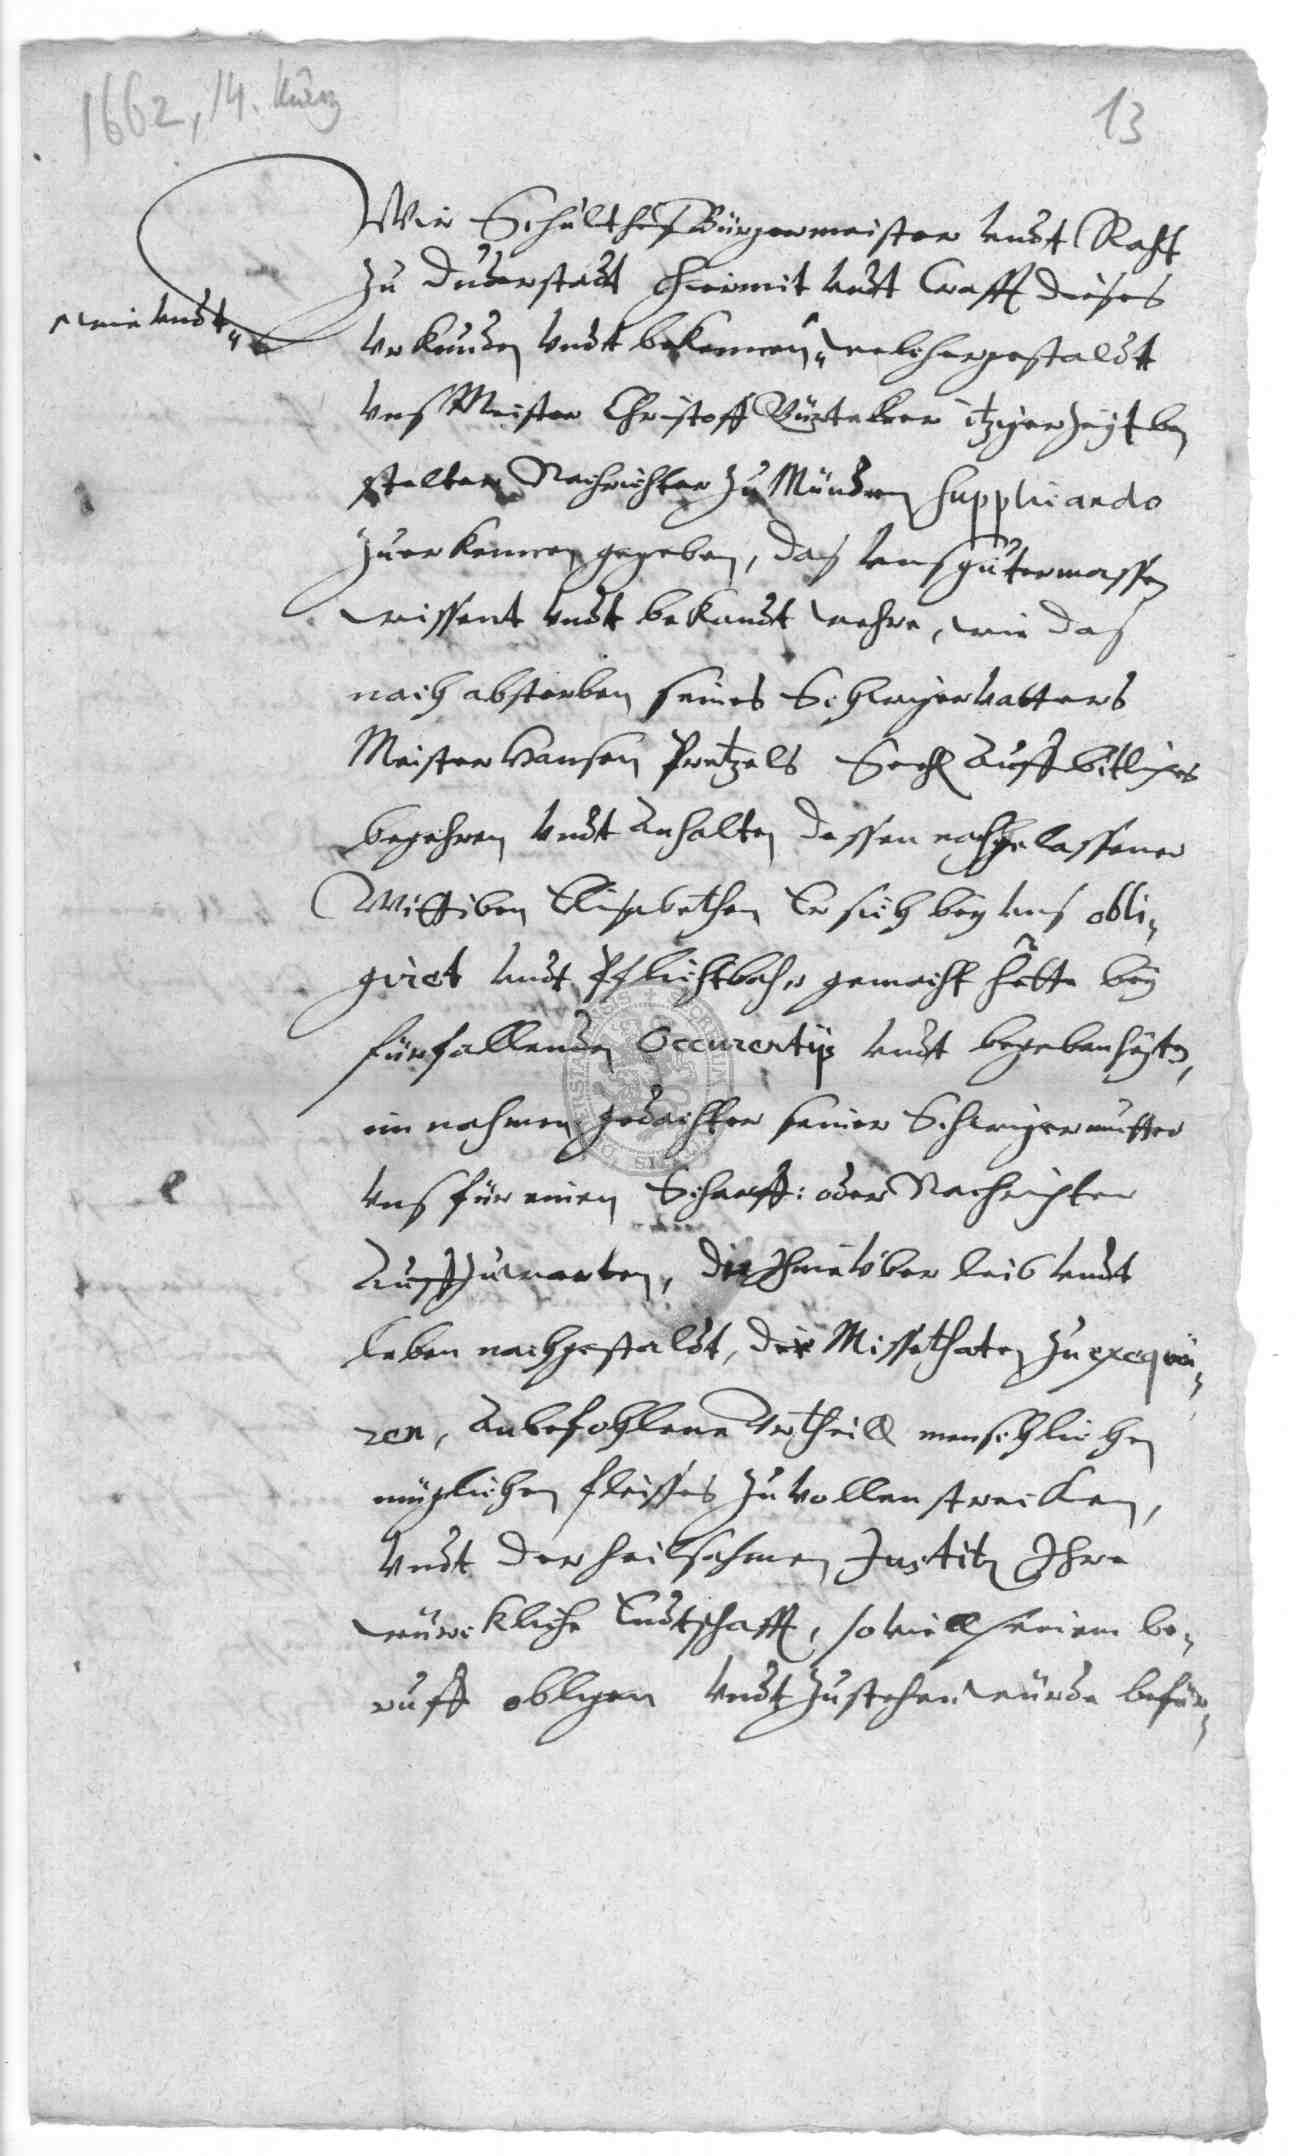 1662, 14. März
13
Wir Schultheß Bürgermeister undt Raht
zu Duderstadt hiermit undt Crafft dieses
wie undt
Urkunden undt bekennen, welchergestaldt
uns Meister Christoff itziger Zeijt be
stelter Nachrichter zu Münden supplicando
zuerkennen gegeben, daß uns gutermassen
wissent undt bekandt wehre, wie daß
nach absterben seines Schwigervatters
Meister Hansen Pretzels Seel. Auff bitliches
begehren undt Anhalten dessen nachgelassener
Wittiben Elisabethen Er sich beij uns obli,
giret undt Pflichtbahr gemacht hette beij
fürfallenden Occurentijs undt begebenheijten,
im nahmen gedachter seiner Schwigermutter
uns für einen Scharff: oder Nachrichter
Auffzuwarten, die Ihme über leib undt
leben nachgestaldt, die Missethaten zu exequi,
ren, Anbefohlene Urtheill menschlichen
müglichen fleisses zu vollenstrecken,
undt der heilsahmen Justitz Ihre
würckliche Endtschafft, so viell seinem be,
ruff obligen undt zustehen würde befür,